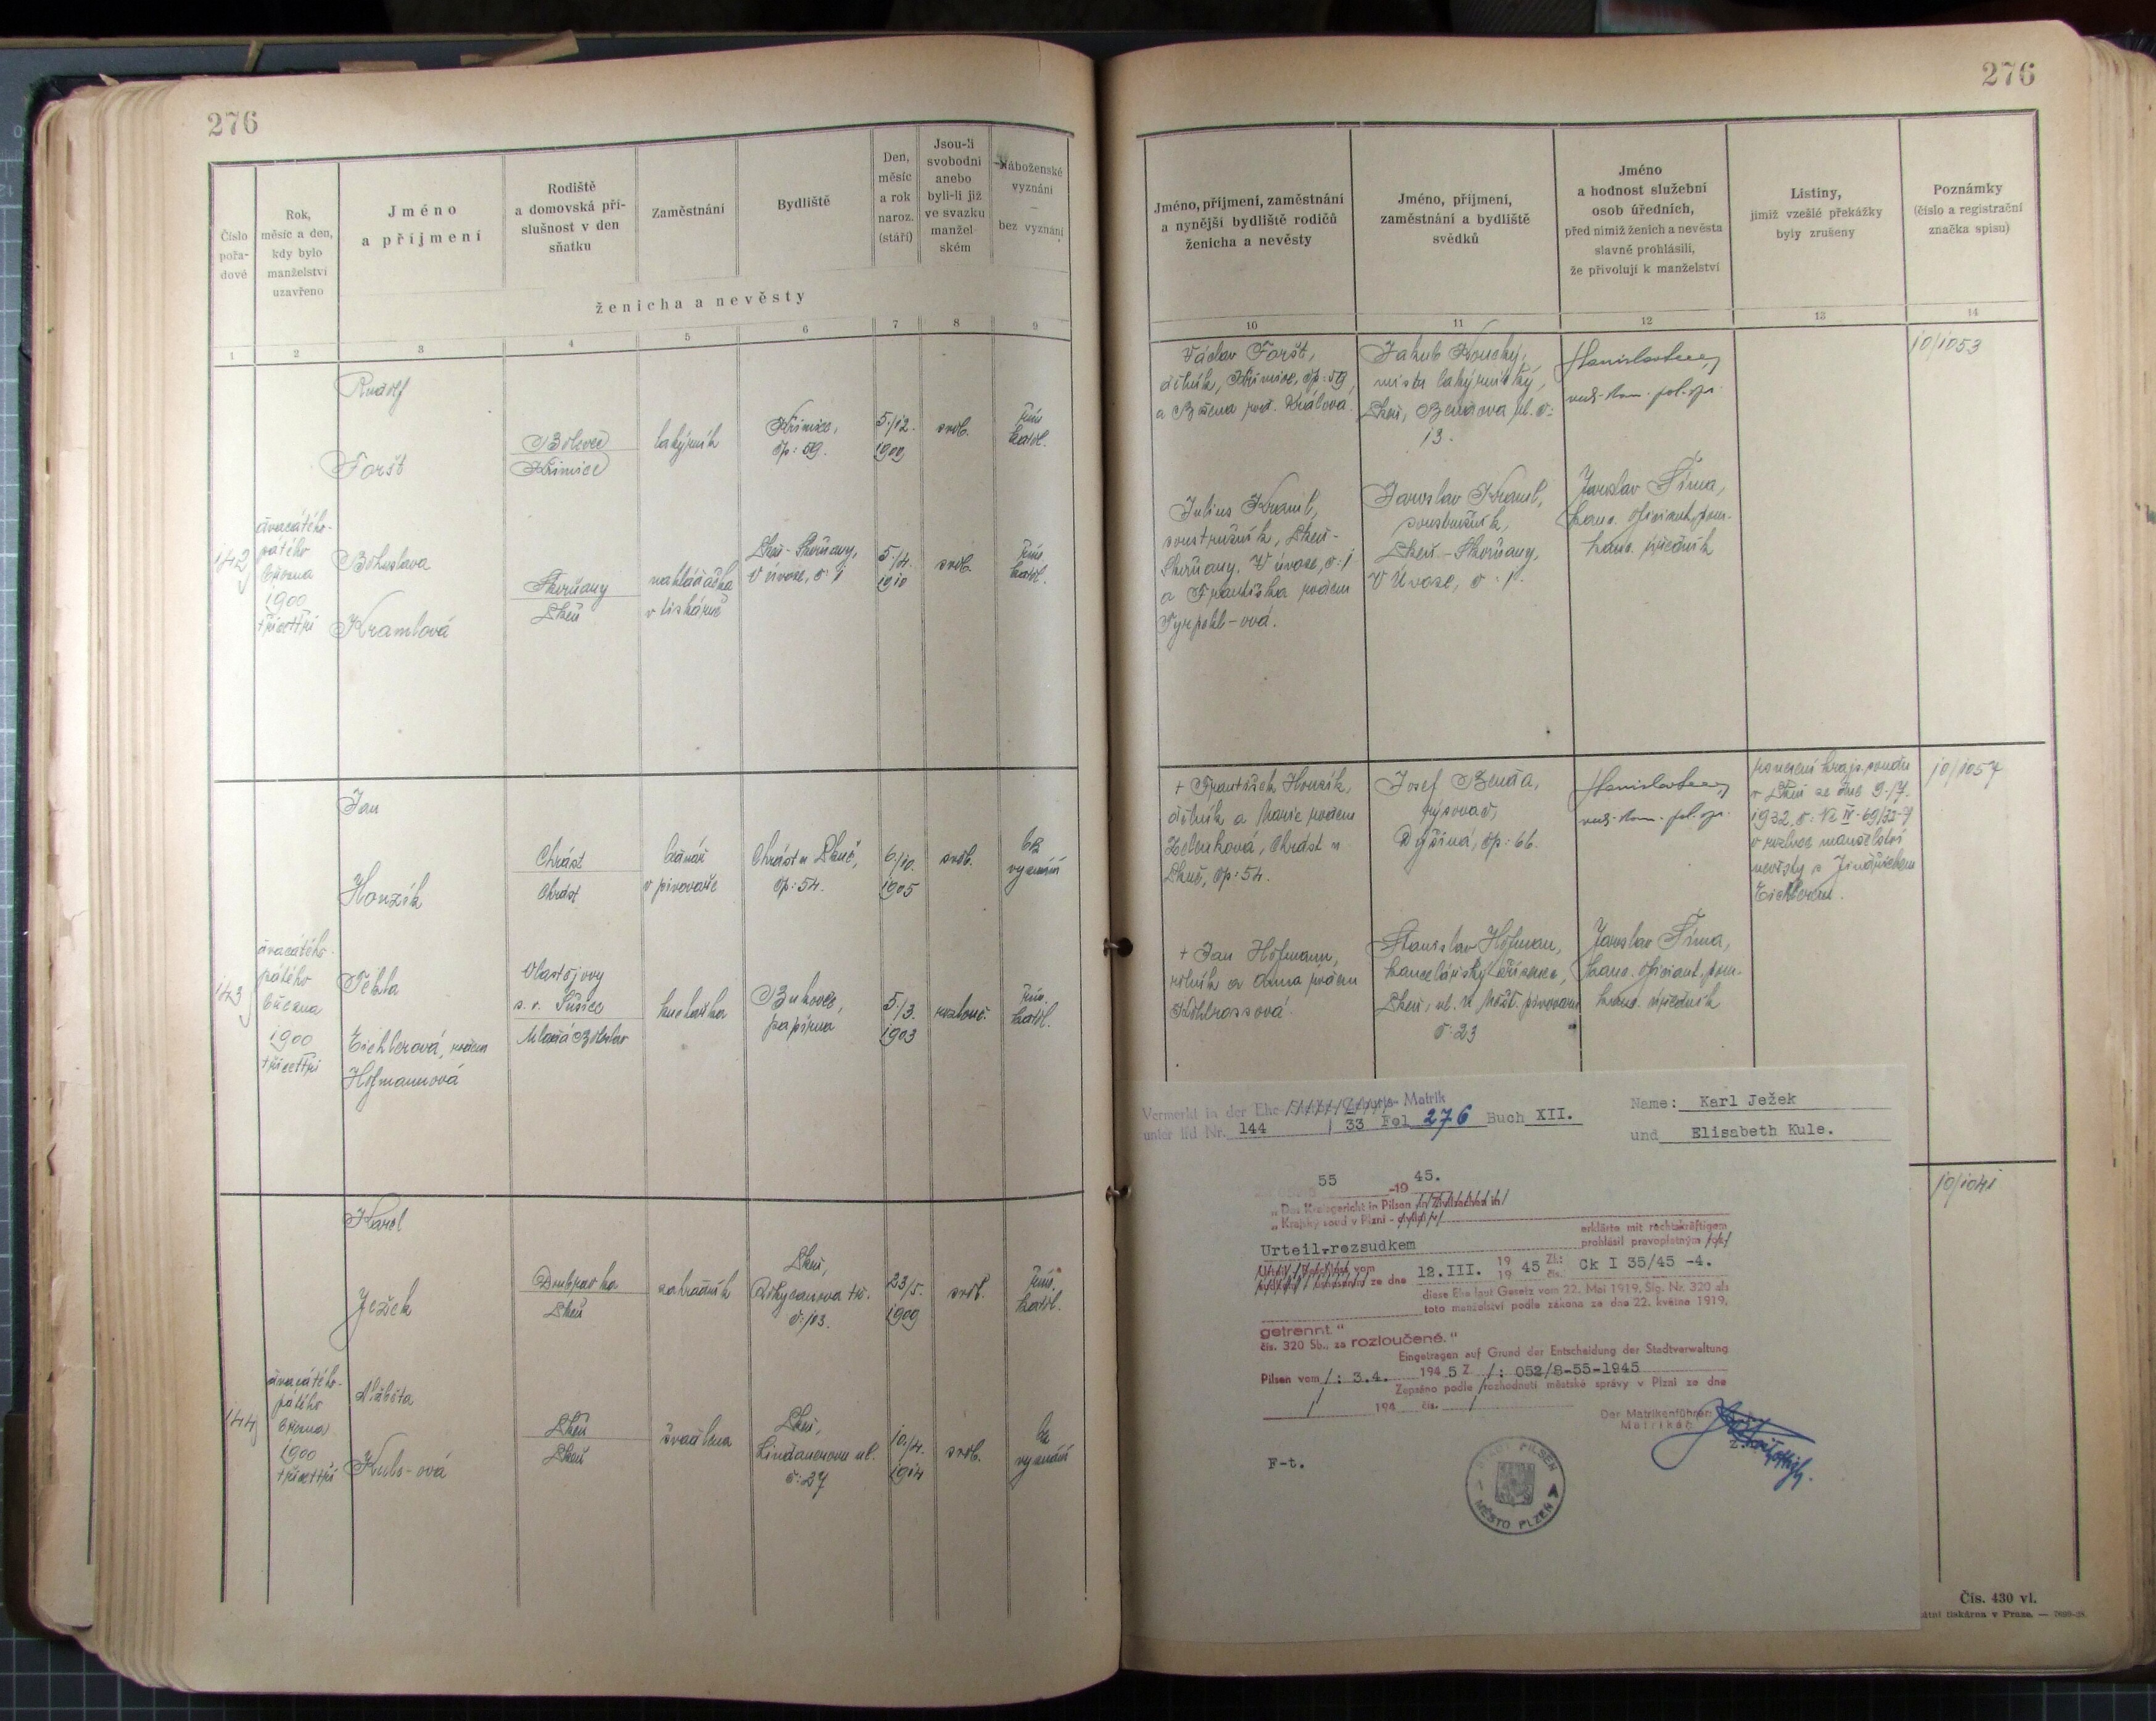 276
Číslo
pořa-
dové
Rok,
měsíc a den,
kdy bylo
manželství
uzavřeno
Jméno
a příjmení
Rodiště
a domovská pří-
slušnost v den
sňatku
Zaměstnání
Bydliště
Den,
měsíc
a rok
naroz.
(stáří)
Jsou-li
svobodni
anebo
byli-li již
ve svazku
manžel-
ském
Náboženské
vyznání
—
bez vyznání
ženicha a nevěsty
1 2 3 4 5 6 7 8 9
Rudolf
Foršt
Bolevec
Křimice
lakýrník
Křimice,
čp: 59.
5./12.
1909
svob.
řím.
katol.
142
dvacátého-
pátého
března
1900
třicettři
Bohuslava
Kramlová
Skvrňany
Plzeň
nakládačka
v tiskárně
Plzeň-Skvrňany,
V úvoze, č: 1
5./4.
1910
svob.
řím.
katol.
Jan
Honzík
Chrást
Chrást
bednář
v pivovaře
Chrást u Plzně,
čp: 54.
6./10.
1905
svob.
bez
vyznání
143
dvacátého-
pátého
března
1900
třicettři
Tekla
Eichlerová, rozená
Hofmannová
Vlastějovy
s. o. Sušice
Mladá Boleslav
kuchařka
Bukovec,
papírna
5./3.
1903
rozlouč.
řím.
katol.
Karel
Ježek
Doubravka
Plzeň
zahradník
Plzeň,
Rokycanova tř.
č: 103.
23/5.
1909
svob.
řím.
katol.
144
dvacátého-
pátého
března
1900
třicettři
Alžběta
Kule-ová
Plzeň
Plzeň
švadlena
Plzeň,
Lindauerova ul.
č: 27
10./4.
1914
svob.
bez
vyznání
276
Jméno, příjmení, zaměstnání
a nynější bydliště rodičů
ženicha a nevěsty
Jméno, příjmení,
zaměstnání a bydliště
svědků
Jméno
a hodnost služební
osob úředních,
před nimiž ženich a nevěsta
slavně prohlásili,
že přivolují k manželství
Listiny,
jimiž vzešlé překážky
byly zrušeny
Poznámky
(číslo a registrační
značka spisu)
10 11 12 13 14
Václav Foršt,
dělník, Křimice, čp: 59,
a Božena roz. Králová.
Jakub Kouchý,
mistr lakýrnický,
Plzeň, Bendova ul. č:
13.
10/1053
Julius Kraml,
soustružník, Plzeň-
Skvrňany. V úvoze, č: 1
a Františka rozená
Tyrpekl-ová.
Jaroslav Kraml,
soustružník,
Plzeň-Skvrňany,
V Úvoze, č: 1.
Jaroslav Šíma,
kanc. oficiant, pom.
kanc. úředník
+ František Honzík,
dělník a Marie rozená
Zelenková, Chrást u
Plzně, čp: 54.
Josef Benda,
rýsovač,
Dýšiná, čp: 66.
usnesení krajs. soudu
v Plzni ze dne 9./7.
1932, č: Nc IV-69/32-7
o rozluce manželství
nevěsty s Jindřichem
Eichlerem.
10/1057
+ Jan Hofmann,
rolník a Anna rozená
Kohlrossová.
Stanislav Hofman,
kancelářský zřízenec,
Plzeň, ul. U Měšť. pivovaru
č: 23
Jaroslav Šíma,
kanc. oficiant, pom.
kanc. úředník
10/1041
Vermerkt in der Ehe- Matrik
unter lfd Nr. 144 / 33 Fol 276 Buch XII.
Name: Karl Ježek
und Elisabeth Kule.
55 -19 45.
„Das Kreisgericht in Pilsen in Zivilsachen in
„Krajský soud v Plzni -
erklärte mit rechtskräftigem
prohlásil pravoplatným
Urteil-rozsudkem
vom
ze dne 12.III. 19 45 Zl.: Ck I 35/45 -4.
19 čís.
diese Ehe laut Gesetz vom 22. Mai 1919, Slg. Nr. 320 als
toto manželství podle zákona ze dne 22. května 1919,
getrennt."
čís. 320 Sb., za rozloučené."
Eingetragen auf Grund der Entscheidung der Stadtverwaltung
Pilsen vom /: 3.4. 194 5 Z. /: 052/8-55-1945
Zapsáno podle rozhodnutí městské správy v Plzni ze dne
194 čís.
Der Matrikenführer:
Matrikář
F-t.
STADT PILSEN
MĚSTO PLZEŇ
Čís. 430 vl.
tiskárna v Praze. —